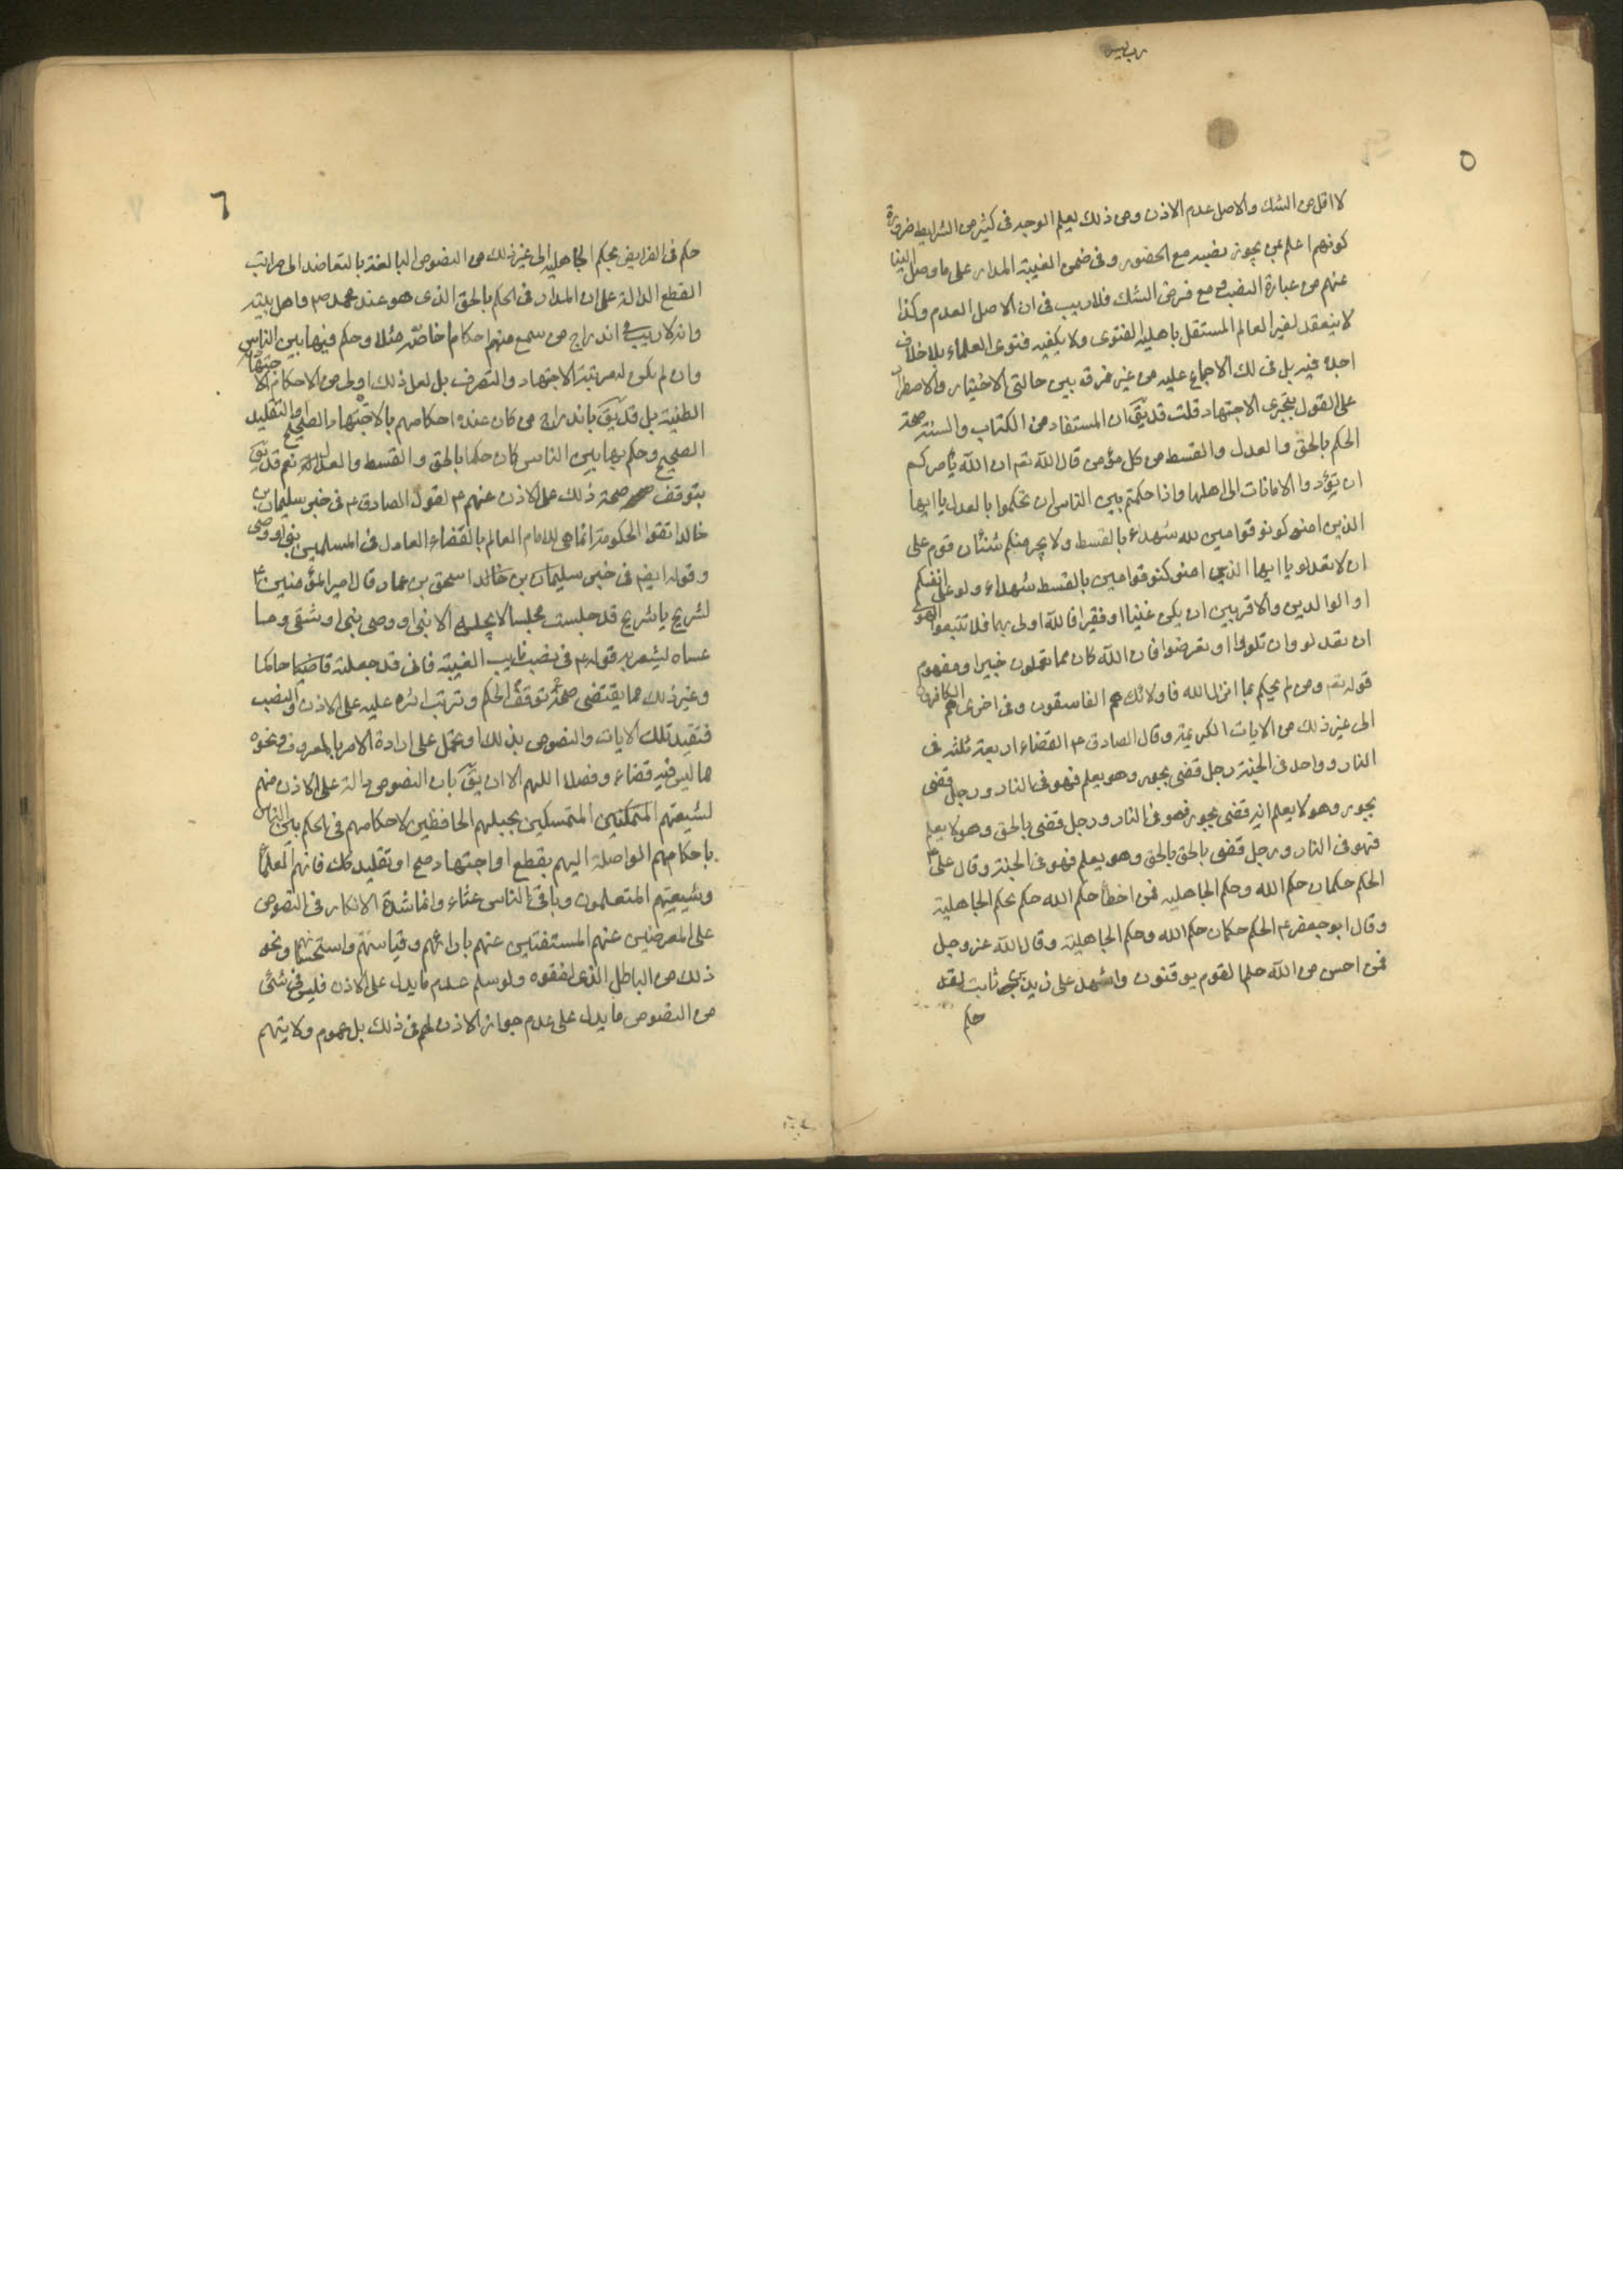 ٥
لا اقل من الشك والاصل عدم الاذن ومن ذلك يعلم الوجه فى كثير من الشرايط ضرورة
كونهم اعلم بمن يجوز نصبه مع الحضور وفى ضمن الغيبة المدار على ما وصل الينا
عنهم من عبارة النصب ومع فرض الشك فلا ريب فى ان الاصل العدم وكذا
لا ينعقد لغير العالم المستقل باهلية الفتوى ولا يكفيه فتوى العلماء بلا خلاف
اجده فيه بل فى لك الاجماع عليه من غير فرق بين حالتى الاختيار والاضطرار
على القول بتجزى الاجتهاد قلت قد يق ان المستفاد من الكتاب والسنة صحة
الحكم بالحق والعدل والقسط من كل مؤمن قال الله تعم ان الله يامركم
ان تؤدوا الامانات الى اهلها واذا حكمتم بين الناس ان تحكموا بالعدل يا ايها
الذين امنو كونو قوامين لله شهداء بالقسط ولا يجرمنكم شنئان قوم على
ان لا تعدلو يا ايها الذين امنو كنو قوامين بالقسط شهداء ولو على انفسكم
او الوالدين والاقربين ان يكن غنيا او فقيرا فالله اولى بهما فلا تتبعوا الهوى
ان تعدلو وان تلووا او تعرضوا فان الله كان مما تعملون خبيرا ومفهوم
قوله تعم ومن لم يحكم بما انزل الله فاولائك هم الفاسقون وفى اخرى هم الكافرون
الى غير ذلك من الايات الكريمة وقال الصادق ع القضاء اربعة ثلثة فى
النار وواحد فى الجنة رجل قضى بجور وهو يعلم فهو فى النار ورجل قضى
بجور وهو لا يعلم انه قضى بجور فهو فى النار ورجل قضى بالحق وهو لا يعلم
فهو فى النار ورجل قضى بالحق بالحق وهو يعلم فهو فى الجنة وقال على ع
الحكم حكمان حكم الله وحكم الجاهلية فمن اخطأ حكم الله حكم بحكم الجاهلية
وقال ابو جعفر ع الحكم حكمان حكم الله وحكم الجاهلية وقال الله عز وجل
فمن احسن من الله حكما لقوم يوقنون واشهد على زيد بن ثابت لقد
حكم
٦
حكم فى الفرايض بحكم الجاهلية الى غير ذلك من النصوص البالغة بالتعاضد الى مراتب
القطع الدالة على ان المدار فى الحكم بالحق الذى هو عند محمد ص واهل بيته
وانه لا ريب فى اندراج من سمع منهم احكاما خاصة مثلا وحكم فيها بين الناس
وان لم يكن له مرتبة الاجتهاد والتصرف بل لعل ذلك اولى من الاحكام الاجتهادية
الظنية بل قد يق باندراج من كان عنده احكامهم بالاجتهاد الصحيح او التقليد
الصحيح وحكم بها بين الناس كان حكما بالحق والقسط والعدل نعم قد يق
بتوقف صحة ذلك على الاذن عنهم ع لقول الصادق ع فى خبر سليمان بن
خالد اتقوا الحكومة انما هى للامام العالم بالقضاء العادل فى المسلمين بنى او وصى
وقوله ايضم فى خبر سليمان بن خالد اسحق بن عمار قال امير المؤمنين ع
لشريح يا شريح قد جلست مجلسا لا يجلسه الا بنى او وصى بنى او شقى وما
عساه ليشعر به قوله ع فى نصب نايب الغيبة فانى قد جعلته قاضيا حاكما
وغير ذلك مما يقتضى صحة توقف الحكم وترتب اثره عليه على الاذن والنصب
فتقيد تلك الايات والنصوص بذلك او تحمل على ارادة الامر بالمعروف ونحوه
مما ليس فيه قضاء وفصلا اللهم الا ان يق بان النصوص دالة على الاذن منهم
لشيعتهم المتمكنين المتمسكين بحبلهم الحافظين لاحكامهم فى الحكم بين الناس
باحكامهم الواصلة اليهم بقطع او اجتهاد صح او تقليد كك فانهم العلماء
وشيعتهم المتعلمون وباقى الناس غثاء وانما شدة الانكار فى النصوص
على المعرضين عنهم المستفتين عنهم بارائهم وقياسهم واستحسانهم ونحو
ذلك من الباطل الذى لفقوه ولو سلم عدم ما يدل على الاذن فليس فى شئ
من النصوص ما يدل على عدم جواز الاذن لهم فى ذلك بل عموم ولايتهم